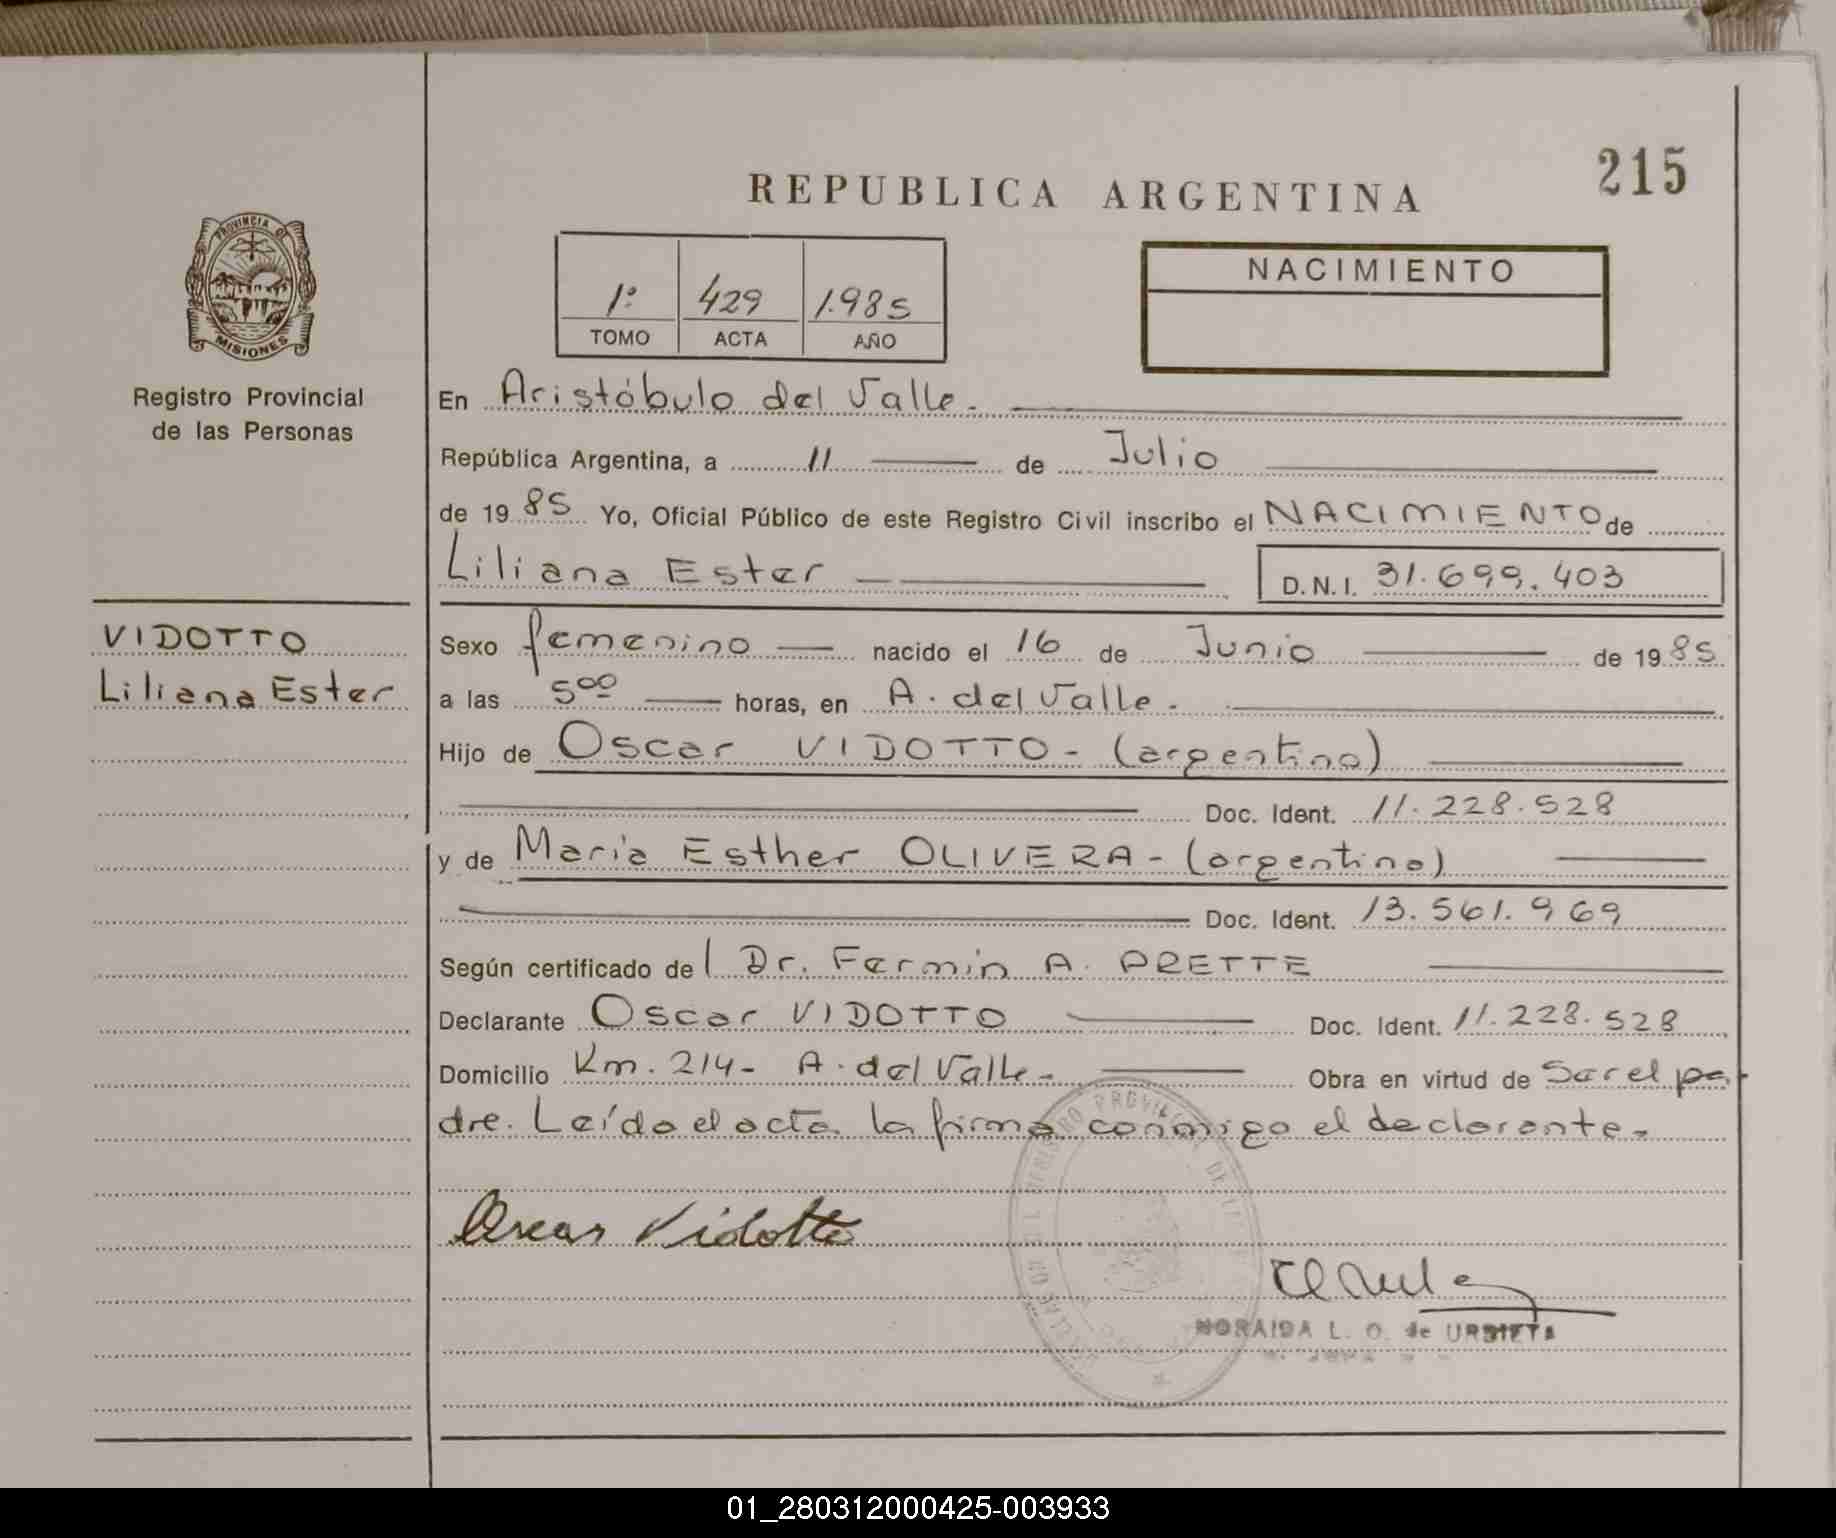 215
REPUBLICA ARGENTINA
PROVINCIA DE
MISIONES
Registro Provincial
de las Personas
VIDOTTO
Liliana Ester
1º 429 1.985
TOMO ACTA AÑO
NACIMIENTO
En Aristóbulo del Valle.
República Argentina, a 11 de Julio
de 1985 Yo, Oficial Público de este Registro Civil inscribo el NACIMIENTO de
Liliana Ester D.N.I. 31.699.403
Sexo femenino nacido el 16 de Junio de 1985
a las 5oo horas, en A. del Valle.
Hijo de Oscar VIDOTTO - (argentino)
Doc. Ident. 11.228.528
y de María Esther OLIVERA - (argentina)
Doc. Ident. 13.561.969
Según certificado del Dr. Fermín A. PRETTE
Declarante Oscar VIDOTTO Doc. Ident. 11.228.528
Domicilio Km. 214 - A. del Valle - Obra en virtud de Ser el pa-
dre. Leída el acta la firma conmigo el declarante.
Oscar Vidotto
NORAIDA L. O. de URBIETA
01_280312000425-003933